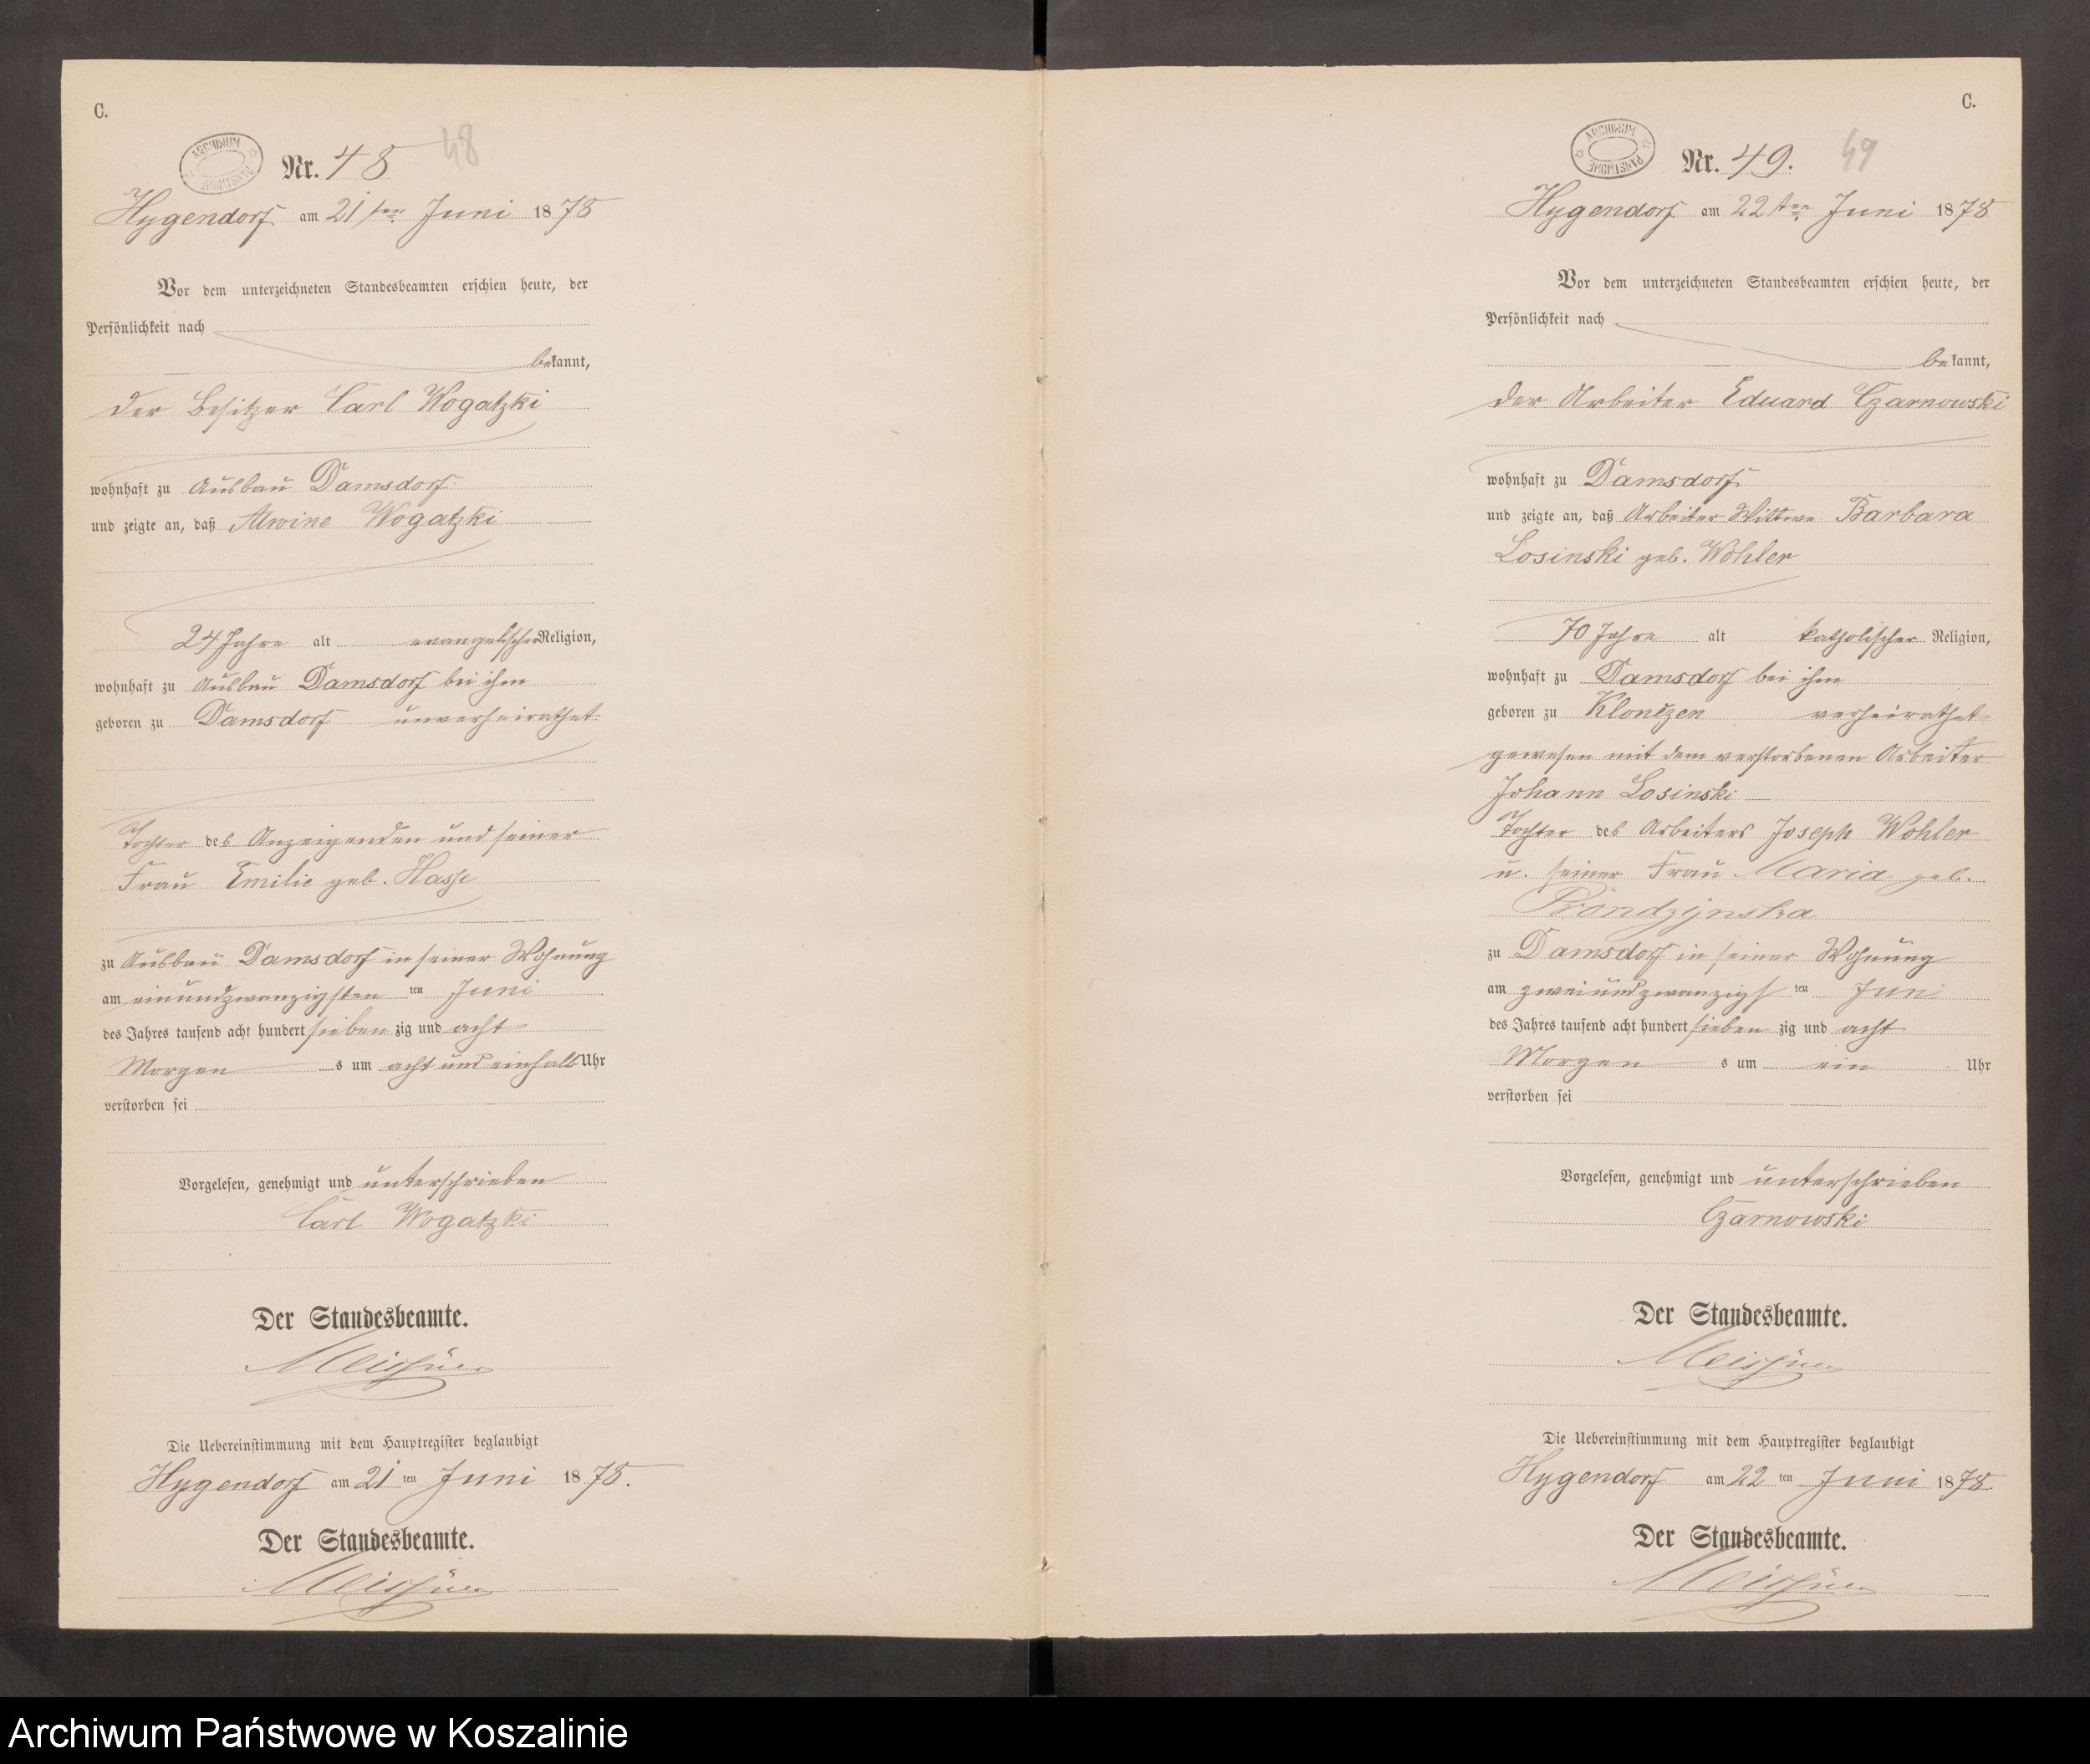 C.
ARCHIWUM PAŃSTWOWE
Nr. 48
48
Hygendorf am 21ten Juni 1878
Vor dem unterzeichneten Standesbeamten erschien heute, der
Persönlichkeit nach
bekannt,
der Besitzer Carl Wogatzki
wohnhaft zu Ausbau Damsdorf
und zeigte an, daß Alwine Wogatzki
24 Jahre alt evangelischer Religion,
wohnhaft zu Ausbau Damsdorf bei ihm
geboren zu Damsdorf unverheirathet
Tochter des Anzeigenden und seiner
Frau Emilie geb. Hasse
zu Ausbau Damsdorf in seiner Wohnung
am einundzwanzigsten ten Juni
des Jahres tausend acht hundert sieben zig und acht
Morgen s um acht und einhalb Uhr
verstorben sei
Vorgelesen, genehmigt und unterschrieben
Carl Wogatzki
Der Standesbeamte.
Die Uebereinstimmung mit dem Hauptregister beglaubigt
Hygendorf am 21 ten Juni 1878.
Der Standesbeamte.
C.
ARCHIWUM PAŃSTWOWE
Nr. 49.
49
Hygendorf am 22ten Juni 1878
Vor dem unterzeichneten Standesbeamten erschien heute, der
Persönlichkeit nach
bekannt,
der Arbeiter Eduard Czarnowski
wohnhaft zu Damsdorf
und zeigte an, daß Arbeiter Wittwe Barbara
Losinski geb. Wohler
70 Jahre alt katholischer Religion,
wohnhaft zu Damsdorf bei ihm
geboren zu Klonczen verheirathet
gewesen mit dem verstorbenen Arbeiter
Johann Losinski
Tochter des Arbeiters Joseph Wohler
u. seiner Frau Maria geb.
Prondzynska
zu Damsdorf in seiner Wohnung
am zweiundzwanzigst ten Juni
des Jahres tausend acht hundert sieben zig und acht
Morgen s um ein Uhr
verstorben sei
Vorgelesen, genehmigt und unterschrieben
Czarnowski
Der Standesbeamte.
Die Uebereinstimmung mit dem Hauptregister beglaubigt
Hygendorf am 22 ten Juni 1878
Der Standesbeamte.
Archiwum Państwowe w Koszalinie